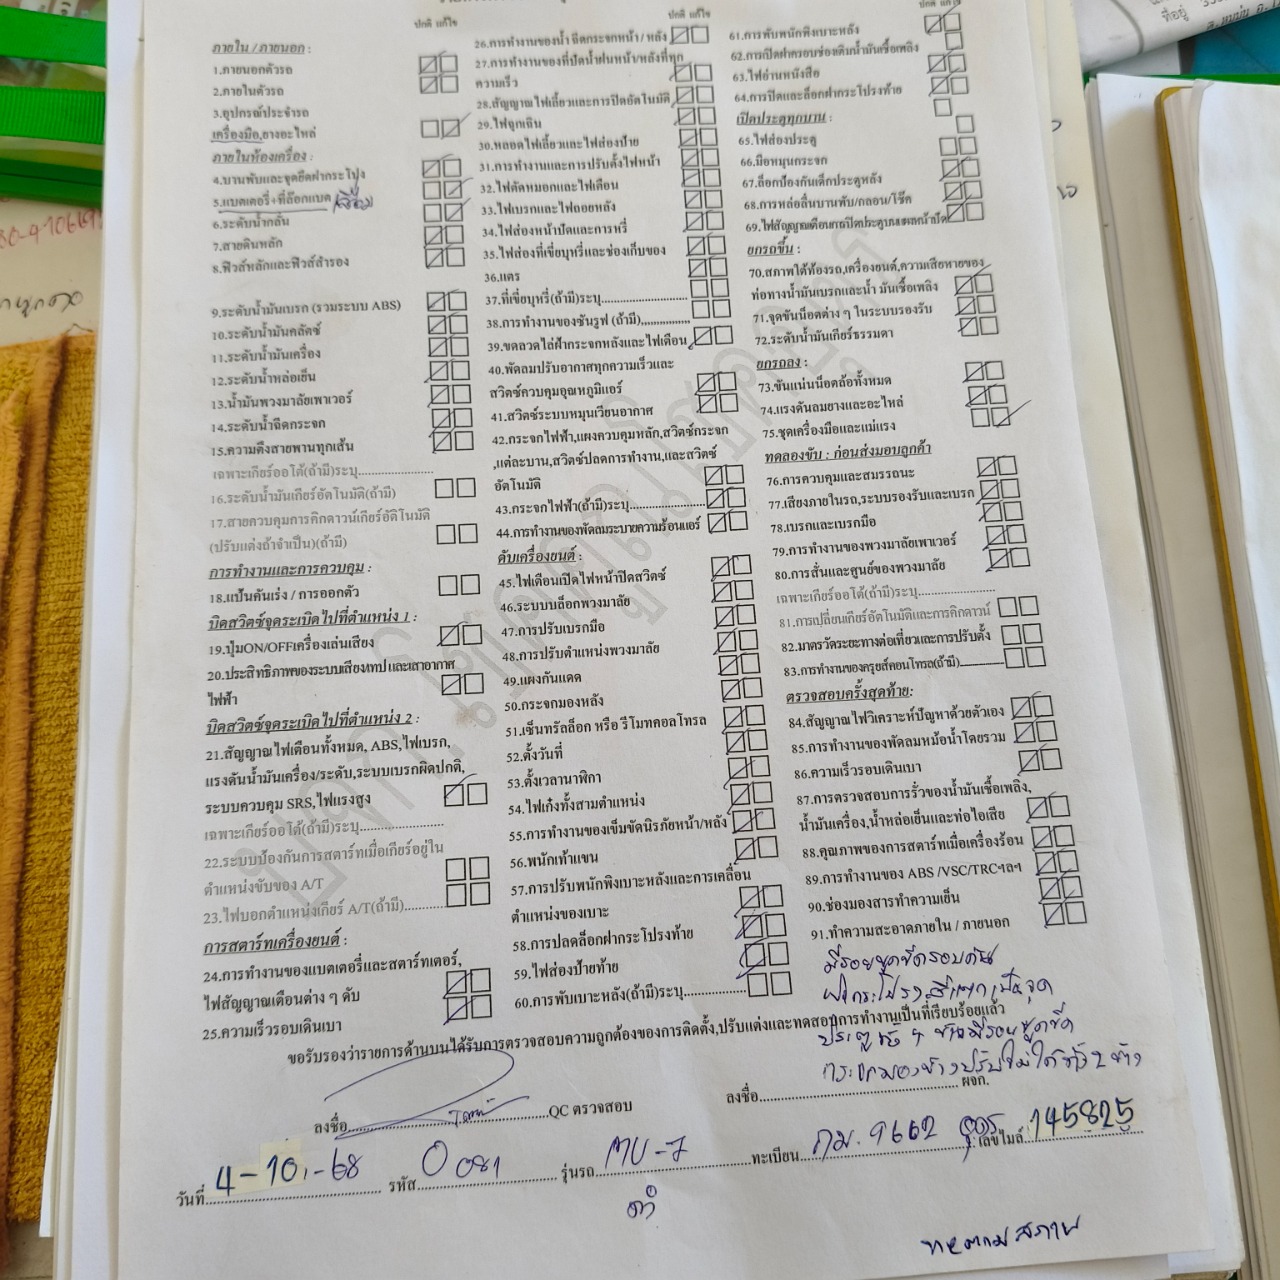 ปกติ แก้ไข
ภายใน / ภายนอก :
1.ภายนอกตัวรถ
2.ภายในตัวรถ
3.อุปกรณ์ประจำรถ
เครื่องมือ,ยางอะไหล่
ภายในห้องเครื่อง :
4.บานพับและจุดยึดฝากระโปรง
5.แบตเตอรี่+ที่ล๊อกแบต
6.ระดับน้ำกลั่น
7.สายดินหลัก
8.ฟิวส์หลักและฟิวส์สำรอง
9.ระดับน้ำมันเบรก (รวมระบบ ABS)
10.ระดับน้ำมันคลัตช์
11.ระดับน้ำมันเครื่อง
12.ระดับน้ำหล่อเย็น
13.น้ำมันพวงมาลัยเพาเวอร์
14.ระดับน้ำฉีดกระจก
15.ความตึงสายพานทุกเส้น
เฉพาะเกียร์ออโต้(ถ้ามี)ระบุ......................
16.ระดับน้ำมันเกียร์อัตโนมัติ(ถ้ามี)
17.สายควบคุมการคิกดาวน์เกียร์อัติโนมัติ
(ปรับแต่งถ้าจำเป็น)(ถ้ามี)
การทำงานและการควบคุม :
18.แป้นคันเร่ง / การออกตัว
บิดสวิตซ์จุดระเบิดไปที่ตำแหน่ง 1 :
19.ปุ่มON/OFFเครื่องเล่นเสียง
20.ประสิทธิภาพของระบบเสียงเทป และเสาอากาศ
ไฟฟ้า
บิดสวิตซ์จุดระเบิดไปที่ตำแหน่ง 2 :
21.สัญญาณไฟเตือนทั้งหมด, ABS,ไฟเบรก,
แรงดันน้ำมันเครื่อง/ระดับ,ระบบเบรกผิดปกติ,
ระบบควบคุม SRS,ไฟแรงสูง
เฉพาะเกียร์ออโต้(ถ้ามี)ระบุ......................
22.ระบบป้องกันการสตาร์ทเมื่อเกียร์อยู่ใน
ตำแหน่งขับของ A/T
23.ไฟบอกตำแหน่งเกียร์ A/T(ถ้ามี)..........
การสตาร์ทเครื่องยนต์ :
24.การทำงานของแบตเตอรี่และสตาร์ทเตอร์,
ไฟสัญญาณเตือนต่าง ๆ ดับ
25.ความเร็วรอบเดินเบา
ปกติ แก้ไข
26.การทำงานของน้ำ ฉีดกระจกหน้า / หลัง
27.การทำงานของที่ปัดน้ำฝนหน้า/หลังที่ทุก
ความเร็ว
28.สัญญาณไฟเลี้ยวและการปิดอัตโนมัติ
29.ไฟฉุกเฉิน
30.หลอดไฟเลี้ยวและไฟส่องป้าย
31.การทำงานและการปรับตั้งไฟหน้า
32.ไฟตัดหมอกและไฟเตือน
33.ไฟเบรกและไฟถอยหลัง
34.ไฟส่องหน้าปัดและการหรี่
35.ไฟส่องที่เขี่ยบุหรี่และช่องเก็บของ
36.แตร
37.ที่เขี่ยบุหรี่(ถ้ามี)ระบุ..........................
38.การทำงานของซันรูฟ (ถ้ามี)...............
39.ขดลวดไล่ฝ้ากระจกหลังและไฟเตือน
40.พัดลมปรับอากาศทุกความเร็วและ
สวิตซ์ควบคุมอุณหภูมิแอร์
41.สวิตซ์ระบบหมุนเวียนอากาศ
42.กระจกไฟฟ้า,แผงควบคุมหลัก,สวิตซ์กระจก
,แต่ละบาน,สวิตซ์ปลดการทำงาน,และสวิตซ์
อัตโนมัติ
43.กระจกไฟฟ้า(ถ้ามี)ระบุ......................
44.การทำงานของพัดลมระบายความร้อนแอร์
ดับเครื่องยนต์ :
45.ไฟเตือนเปิดไฟหน้าปิดสวิตซ์
46.ระบบบล็อกพวงมาลัย
47.การปรับเบรกมือ
48.การปรับตำแหน่งพวงมาลัย
49.แผงกันแดด
50.กระจกมองหลัง
51.เซ็นทรัลล็อก หรือ รีโมทคอลโทรล
52.ตั้งวันที่
53.ตั้งเวลานาฬิกา
54.ไฟเก๋งทั้งสามตำแหน่ง
55.การทำงานของเข็มขัดนิรภัยหน้า/หลัง
56.พนักเท้าแขน
57.การปรับพนักพิงเบาะหลังและการเคลื่อน
ตำแหน่งของเบาะ
58.การปลดล็อกฝากระโปรงท้าย
59.ไฟส่องป้ายท้าย
60.การพับเบาะหลัง(ถ้ามี)ระบุ...............
61.การพับพนักพิงเบาะหลัง
62.การเปิดฝาครอบช่องเติมน้ำมันเชื้อเพลิง
63.ไฟอ่านหนังสือ
64.การปิดและล็อกฝากระโปรงท้าย
เปิดประตูทุกบาน :
65.ไฟส่องประตู
66.มือหมุนกระจก
67.ล็อกป้องกันเด็กประตูหลัง
68.การหล่อลื่นบานพับ/กลอน/โช๊ค
69.ไฟสัญญาณเตือนการปิดประตูบนแผงหน้าปัด
ยกรถขึ้น :
70.สภาพใต้ท้องรถ,เครื่องยนต์,ความเสียหายของ
ท่อทางน้ำมันเบรกและน้ำ มันเชื้อเพลิง
71.จุดขันน็อตต่าง ๆ ในระบบรองรับ
72.ระดับน้ำมันเกียร์ธรรมดา
ยกรถลง :
73.ขันแน่นน็อตล้อทั้งหมด
74.แรงดันลมยางและอะไหล่
75.ชุดเครื่องมือและแม่แรง
ทดลองขับ : ก่อนส่งมอบลูกค้า
76.การควบคุมและสมรรถนะ
77.เสียงภายในรถ,ระบบรองรับและเบรก
78.เบรกและเบรกมือ
79.การทำงานของพวงมาลัยเพาเวอร์
80.การสั่นและศูนย์ของพวงมาลัย
เฉพาะเกียร์ออโต้(ถ้ามี)ระบุ......................
81.การเปลี่ยนเกียร์อัตโนมัติและการคิกดาวน์
82.มาตรวัดระยะทางต่อเที่ยวและการปรับตั้ง
83.การทำงานของครุยส์คอนโทรล(ถ้ามี)..............
ตรวจสอบครั้งสุดท้าย:
84.สัญญาณไฟวิเคราะห์ปัญหาด้วยตัวเอง
85.การทำงานของพัดลมหม้อน้ำโดยรวม
86.ความเร็วรอบเดินเบา
87.การตรวจสอบการรั่วของน้ำมันเชื้อเพลิง,
น้ำมันเครื่อง,น้ำหล่อเย็นและท่อไอเสีย
88.คุณภาพของการสตาร์ทเมื่อเครื่องร้อน
89.การทำงานของ ABS /VSC/TRCฯลฯ
90.ช่องมองสารทำความเย็น
91.ทำความสะอาดภายใน / ภายนอก
มีรอยขูดขีดรอบคัน
ขอรับรองว่ารายการด้านบนได้รับการตรวจสอบความถูกต้องของการติดตั้ง,ปรับแต่งและทดสอบการทำงานเป็นที่เรียบร้อยแล้ว
ลงชื่อ...............QC ตรวจสอบ
ลงชื่อ............... ผจก.
วันที่ 4-10-68 รหัส 0081 รุ่นรถ MU-7 ทะเบียน กม. 9662 เลขไมล์ 145825
ดำ
ตามสภาพ